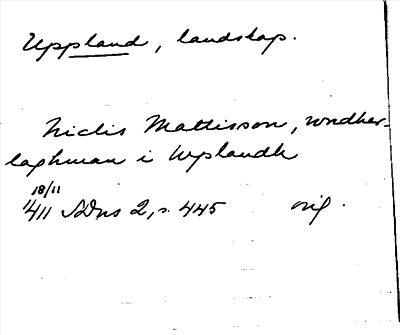 Uppland, landskap.
Niclis Mattisson, wndher-
laghman i Wplandh
18/11
1411 SDns 2, s. 445 orig.